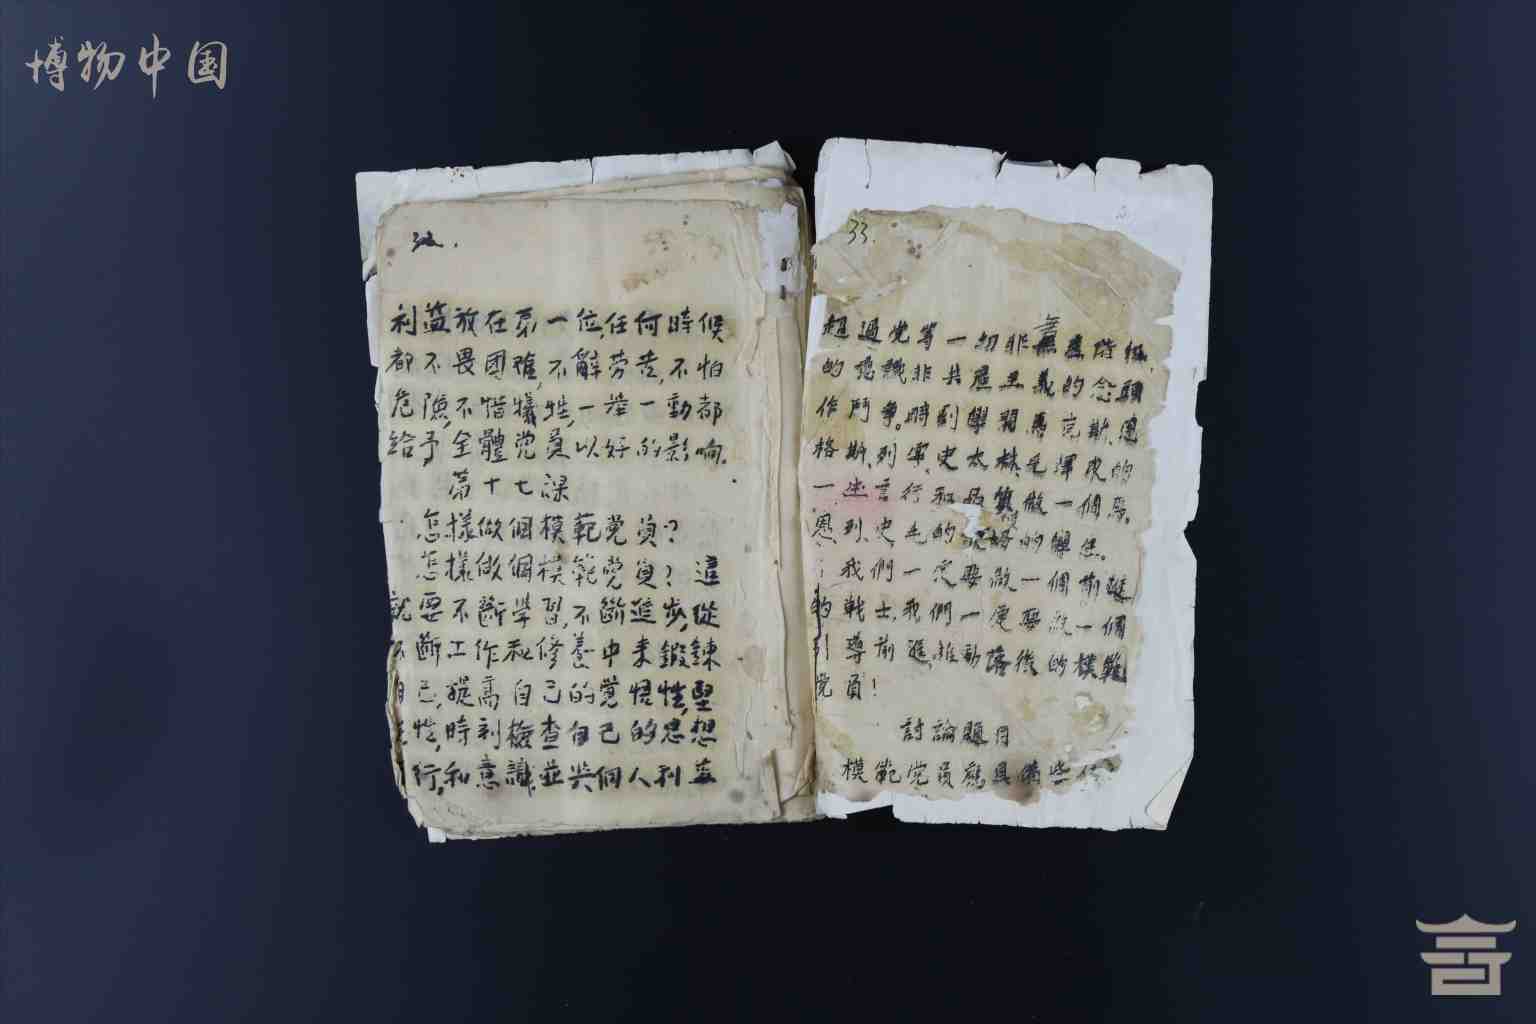 博物中国
32.
利益放在第一位,任何時候
都不畏困难,不辭劳苦,不怕
危險,不惜犧牲,一举一動都
給予全體党員以好的影响.
第十七課
怎樣做個模範党員?
怎樣做個模範党員?這
就要不断學習,不斷進步,從
不斷工作和修養中來鍛鍊
自己,提高自己的覺悟性,堅
性,時刻檢查自己的思想
行,和意識,並與個人利益
33.
超過党等一切非無產階級
的意識,非共產主義的念頭
作鬥爭。時刻學習馬克斯、恩
格斯、列寧、史太林、毛澤東的
一生言行和
恩、列、史、毛的
我們一定要做一個前進
的戰士,我們一定要做一個
引導前進、推動落後的模範
党員!
討論題目
模範党員應具備些什